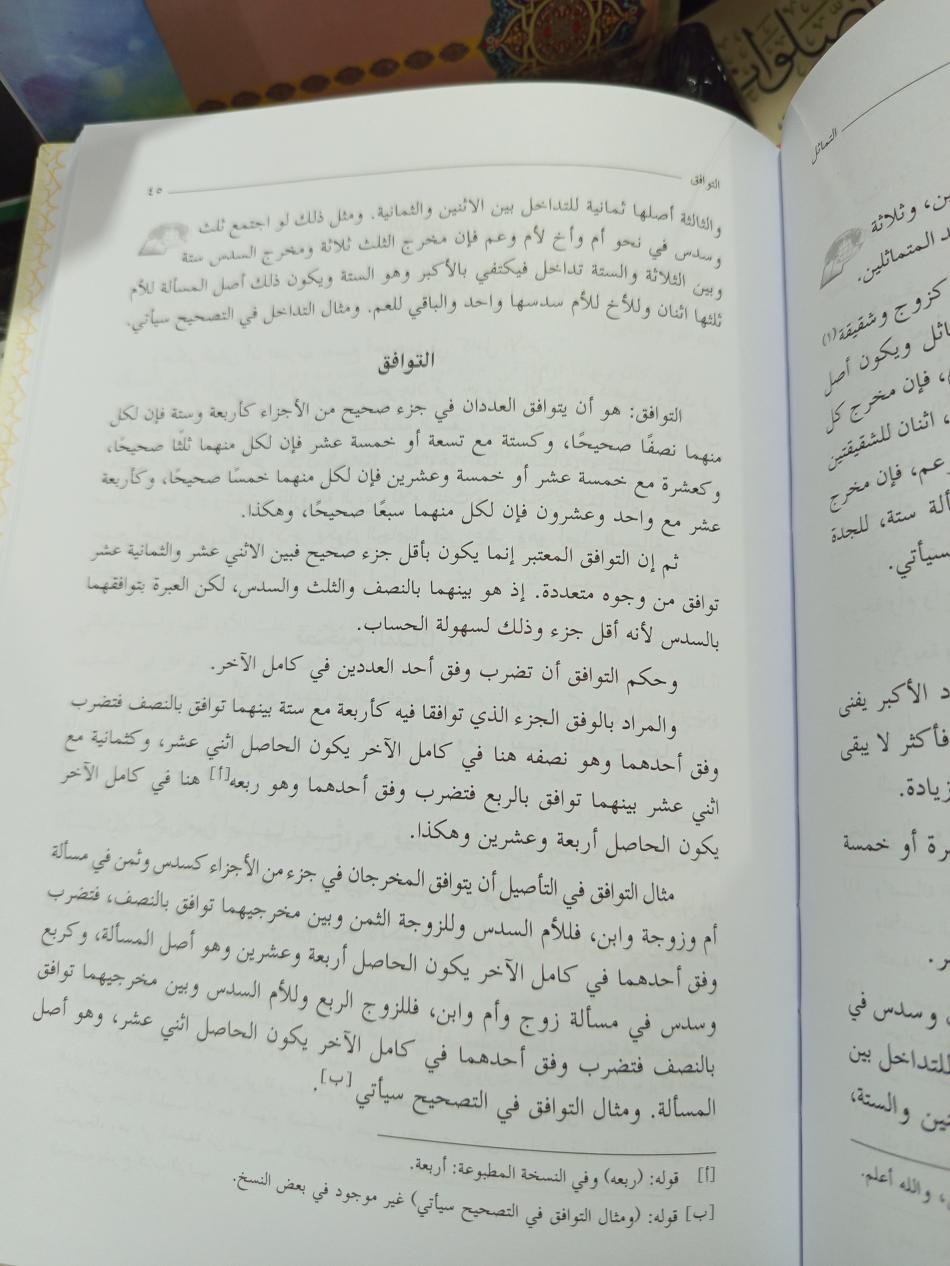 الصلوات
التوافق ٤٥
والثالثة أصلها ثمانية للتداخل بين الاثنين والثمانية. ومثل ذلك لو اجتمع ثلث
وسدس في نحو أم وأخ لأم وعم فإن مخرج الثلث ثلاثة ومخرج السدس ستة
وبين الثلاثة والستة تداخل فيكتفي بالأكبر وهو الستة ويكون ذلك أصل المسألة للأم
ثلثها اثنان وللأخ للأم سدسها واحد والباقي للعم. ومثال التداخل في التصحيح سيأتي.
التوافق
التوافق: هو أن يتوافق العددان في جزء صحيح من الأجزاء كأربعة وستة فإن لكل
منهما نصفًا صحيحًا، وكستة مع تسعة أو خمسة عشر فإن لكل منهما ثلثًا صحيحًا،
وكعشرة مع خمسة عشر أو خمسة وعشرين فإن لكل منهما خمسًا صحيحًا، وكأربعة
عشر مع واحد وعشرون فإن لكل منهما سبعًا صحيحًا، وهكذا.
ثم إن التوافق المعتبر إنما يكون بأقل جزء صحيح فبين الاثني عشر والثمانية عشر
توافق من وجوه متعددة. إذ هو بينهما بالنصف والثلث والسدس، لكن العبرة بتوافقهما
بالسدس لأنه أقل جزء وذلك لسهولة الحساب.
وحكم التوافق أن تضرب وفق أحد العددين في كامل الآخر.
والمراد بالوفق الجزء الذي توافقا فيه كأربعة مع ستة بينهما توافق بالنصف فتضرب
وفق أحدهما وهو نصفه هنا في كامل الآخر يكون الحاصل اثني عشر، وكثمانية مع
اثني عشر بينهما توافق بالربع فتضرب وفق أحدهما وهو ربعه[أ] هنا في كامل الآخر
يكون الحاصل أربعة وعشرين وهكذا.
مثال التوافق في التأصيل أن يتوافق المخرجان في جزء من الأجزاء كسدس وثمن في مسألة
أم وزوجة وابن، فللأم السدس وللزوجة الثمن وبين مخرجيهما توافق بالنصف، فتضرب
وفق أحدهما في كامل الآخر يكون الحاصل أربعة وعشرين وهو أصل المسألة، وكربع
وسدس في مسألة زوج وأم وابن، فللزوج الربع وللأم السدس وبين مخرجيهما توافق
بالنصف فتضرب وفق أحدهما في كامل الآخر يكون الحاصل اثني عشر، وهو أصل
المسألة. ومثال التوافق في التصحيح سيأتي[ب].
[أ] قوله: (ربعه) وفي النسخة المطبوعة: أربعة.
[ب] قوله: (ومثال التوافق في التصحيح سيأتي) غير موجود في بعض النسخ.
التماثل
وثلاثة
المتماثلين.
كزوج وشقيقة(١)
ويكون أصل
فإن مخرج كل
اثنان للشقيقتين
فإن مخرج
ستة، للجدة
سيأتي.
الأكبر يفنى
فأكثر لا يبقى
زيادة.
أو خمسة
وسدس في
للتداخل بين
والستة،
والله أعلم.